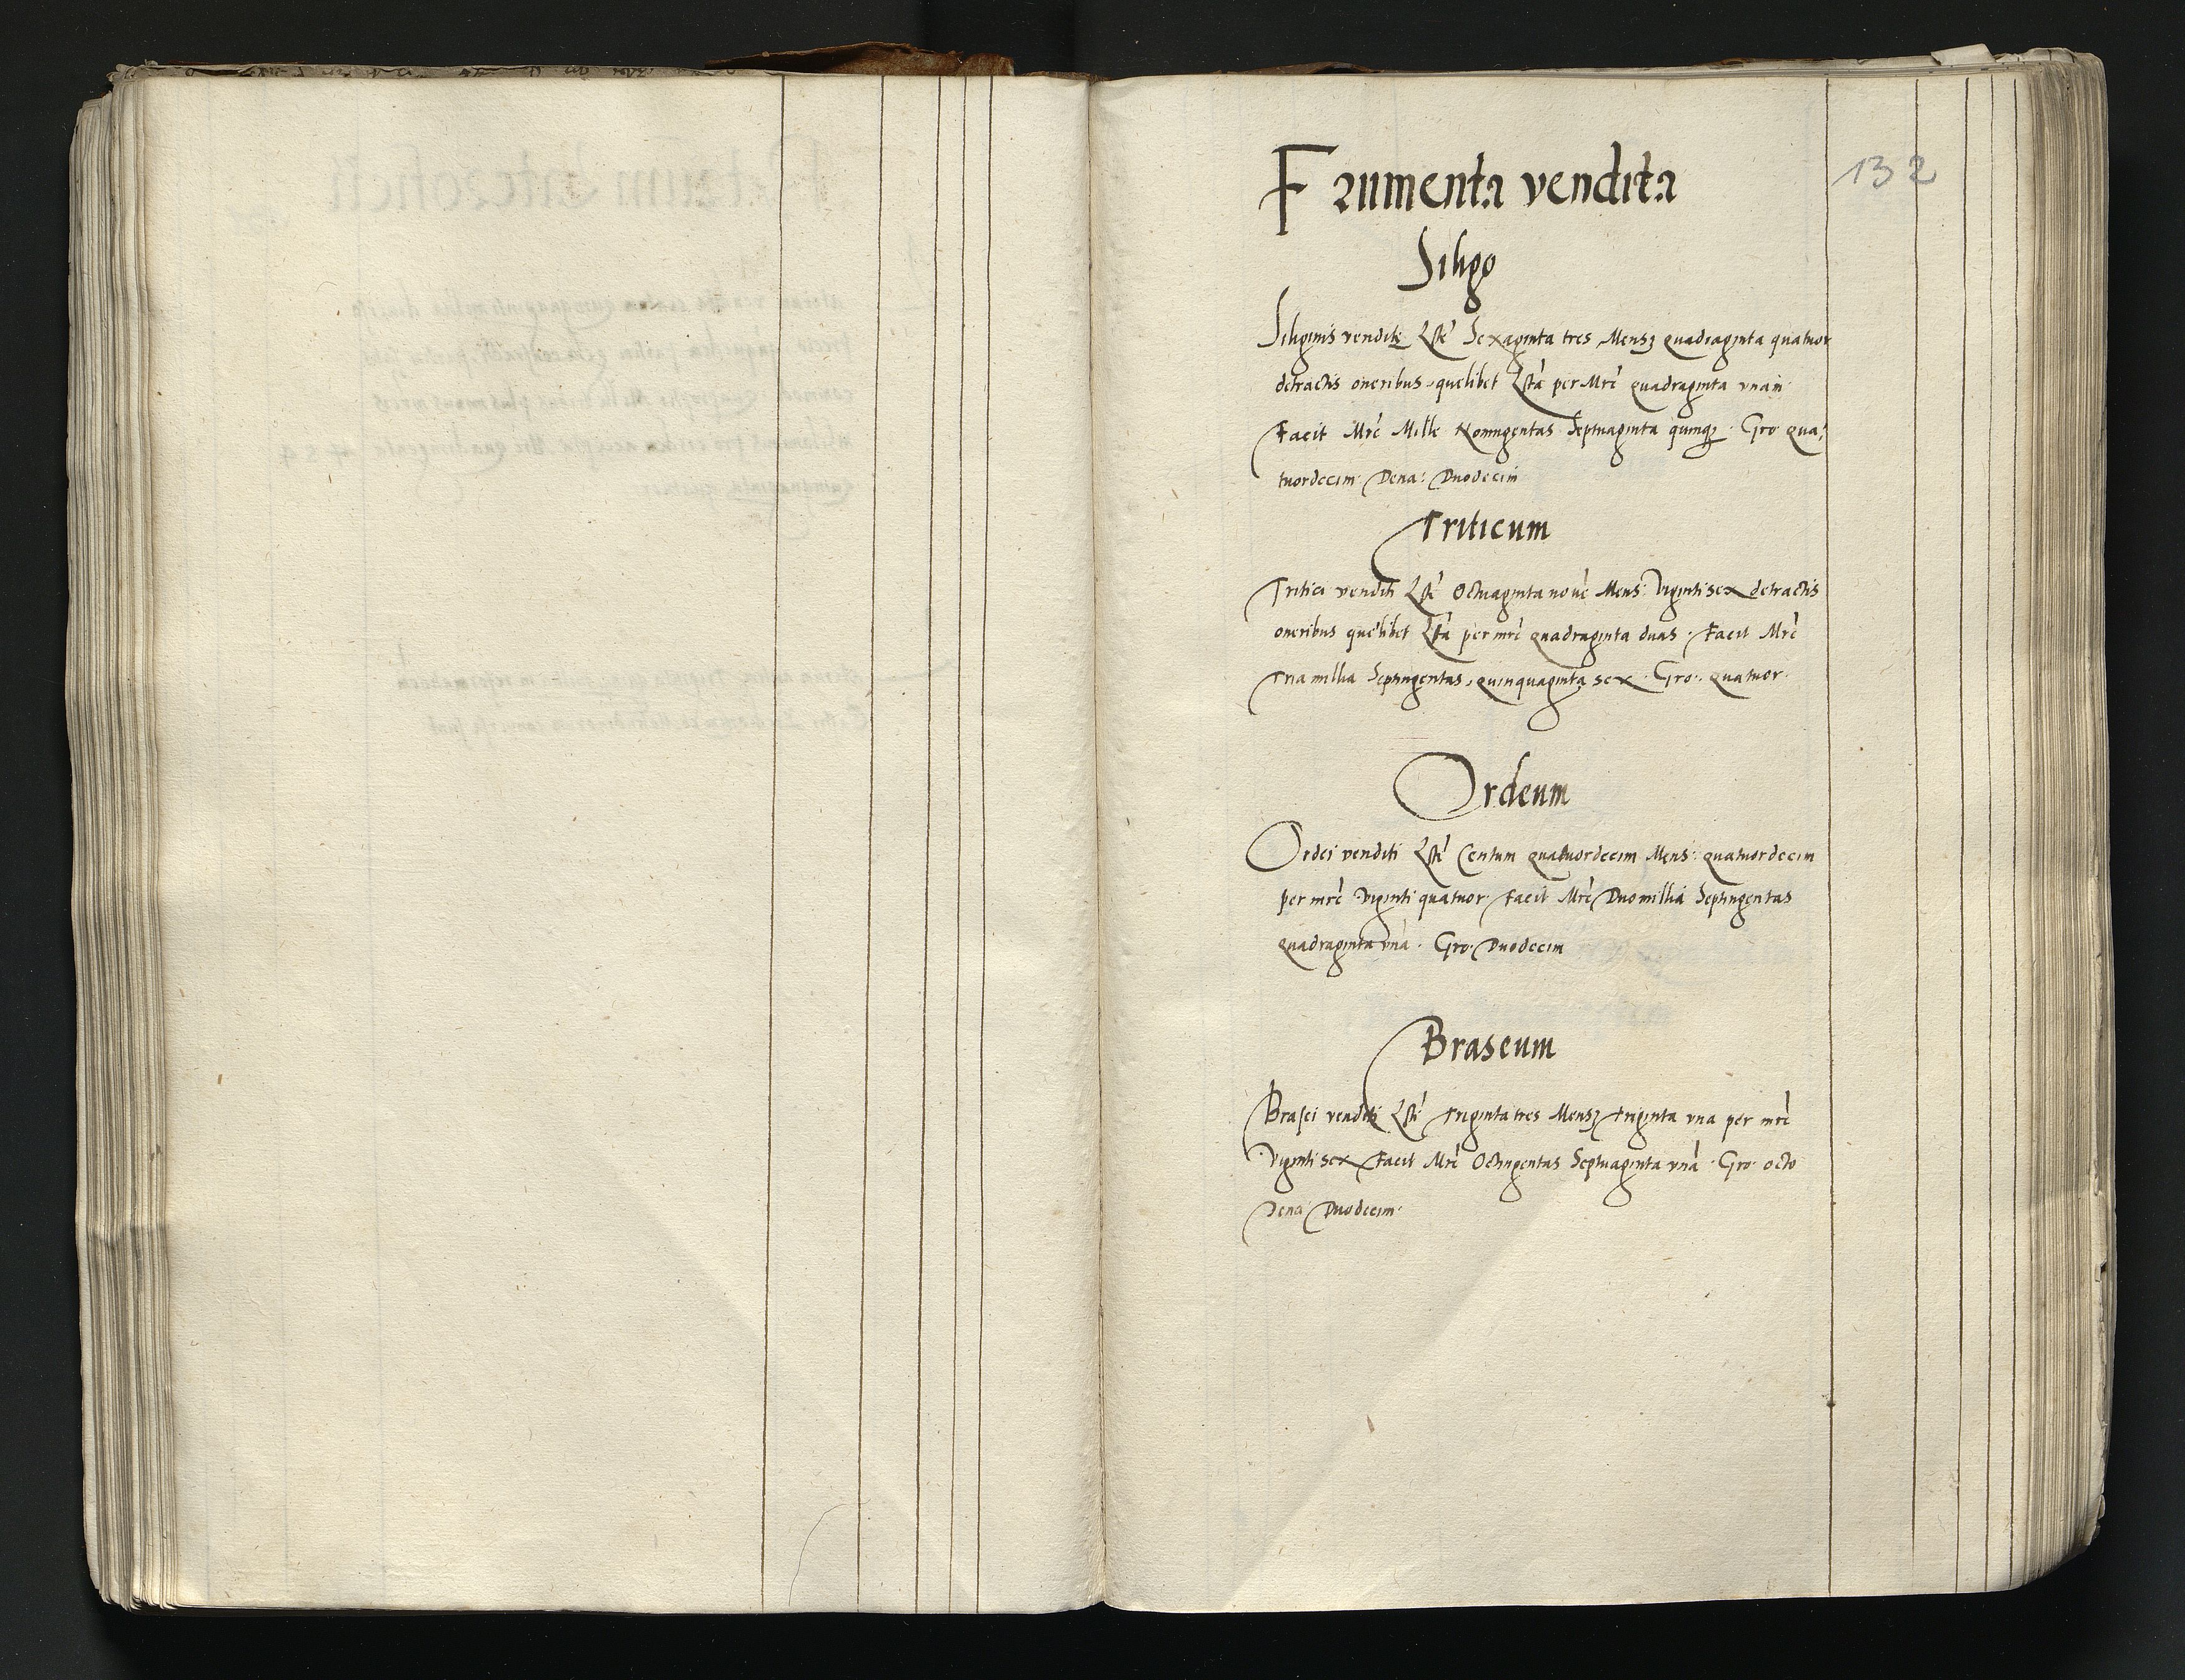 132
Frumenta vendita
Siligo
Siliginis venditę Lste Sexaginta tres Mensʒ quadraginta quatuor
detractis oneribus quelibet Lsta per Mrc quadraginta vnam
Facit Mrc Mille Noningentas Septuaginta quinqʒ Gro qua:
tuordecim Dena: Duodecim
Triticum
Tritici venditi Lste Octuaginta nove Mens: Vigintisex detractis
oneribus quelibet Lsta per mrc quadraginta duas . Facit Mrc
Tria millia Septingentas quinquaginta sex . Gro . quatuor .
Ordeum
Ordei venditi Lste Centum quatuordecim Mens: quatuordecim
per mrc Viginti quatuor Facit Mrc Duo millia Septingentas
quadraginta vna . Gro. Duodecim
Braseum
Brasei venditi Lste Triginta tres Mensʒ triginta vna per mrc
Viginti sex Facit Mrc Octingentas Septuaginta vna . Gro . octo
Dena Duodecim .